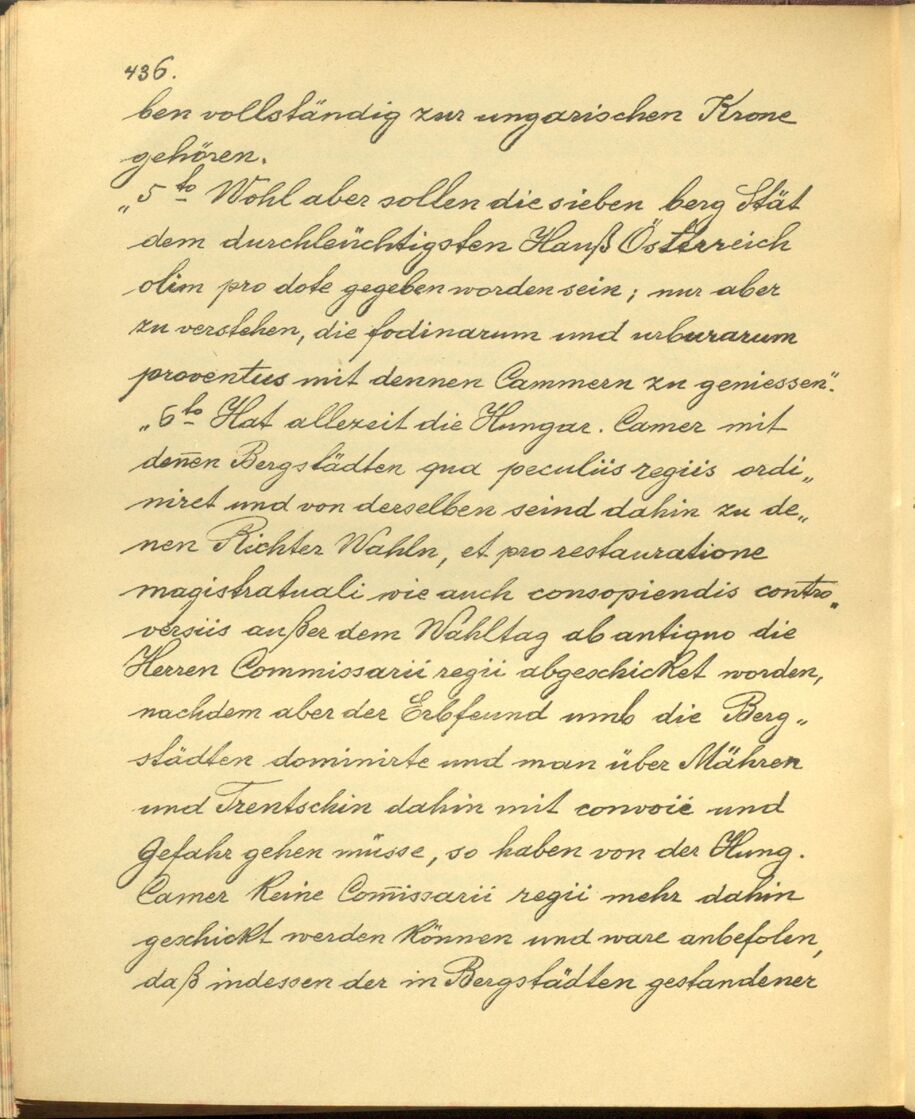 436.
ben vollständig zur ungarischen Krone
gehören.
„5to Wohl aber sollen die sieben berg Stät
dem durchleüchtigsten Hauß Österreich
olim pro dote gegeben worden sein; nur aber
zu verstehen, die fodinarum und urburarum
proventus mit dennen Cammern zu geniessen“.
„6to Hat allezeit die Hungar. Camer mit
deñen Bergstädten qua peculiis regiis ordi„
niret und von derselben seind dahin zu de„
nen Richter Wahln, et pro restauratione
magistratuali wie auch consopiendis contro„
versiis außer dem Wahltag ab antiquo die
Herren Commissarii regii abgeschicket worden,
nachdem aber der Erbfeund umb die Berg„
städten dominirte und man über Mähren
und Trentschin dahin mit convoié und
Gefahr gehen müsse, so haben von der Hung.
Camer keine Com̄issarii regii mehr dahin
geschickt werden können und ware anbefolen,
daß indessen der in Bergstädten gestandener